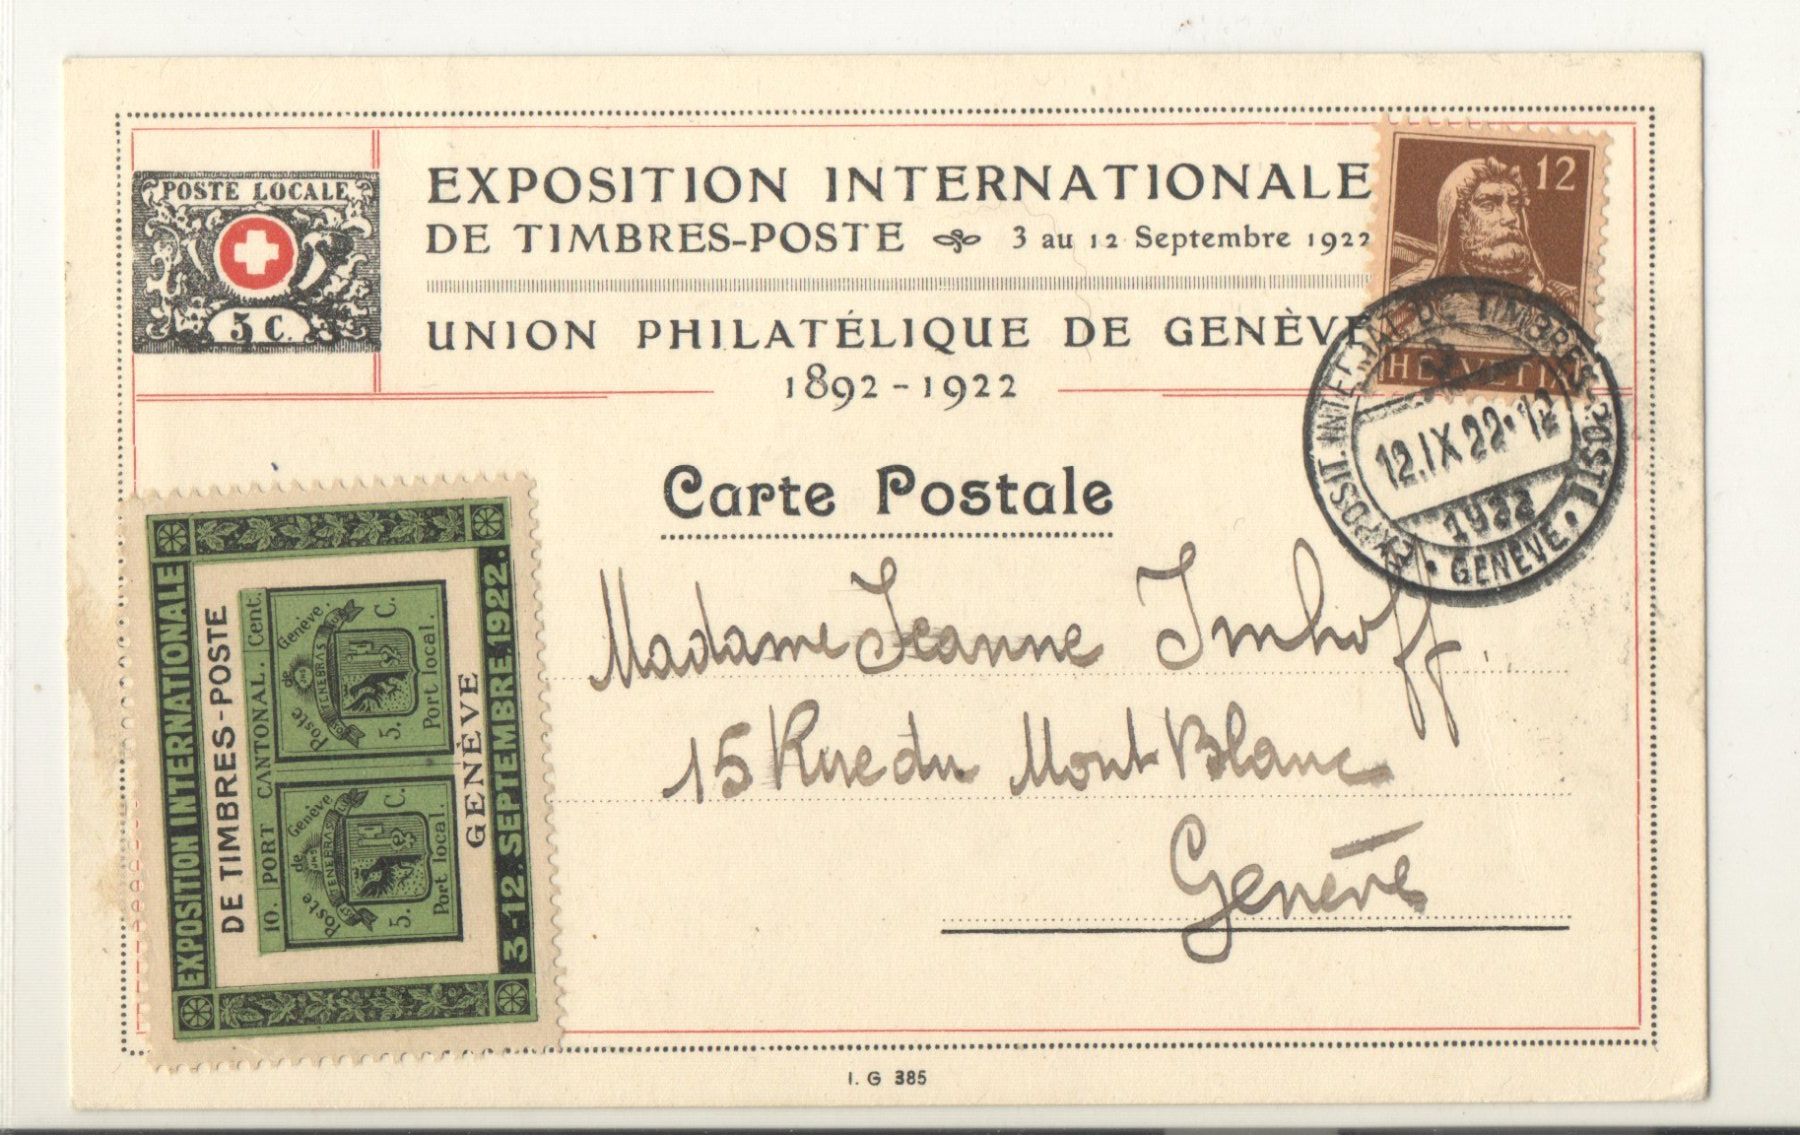 POSTE LOCALE
5 C.
EXPOSITION INTERNATIONALE
DE TIMBRES-POSTE 3 au 12 Septembre 1922
UNION PHILATÉLIQUE DE GENÈVE
1892-1922
12
HELVETIA
EXPOSIT. INTERNAT. DE TIMBRES-POSTE
12.IX 22·12
1922
• GENÈVE •
Carte Postale
Madame Jeanne Imhoff
15 Rue du Mont Blanc
Genève
EXPOSITION INTERNATIONALE
DE TIMBRES-POSTE
10. PORT CANTONAL. Cent.
Poste de Genève
POST TENEBRAS LUX
5. C.
Port local.
Poste de Genève.
POST TENEBRAS LUX
5. C.
Port local.
GENÈVE
3-12. SEPTEMBRE.1922.
I. G 385